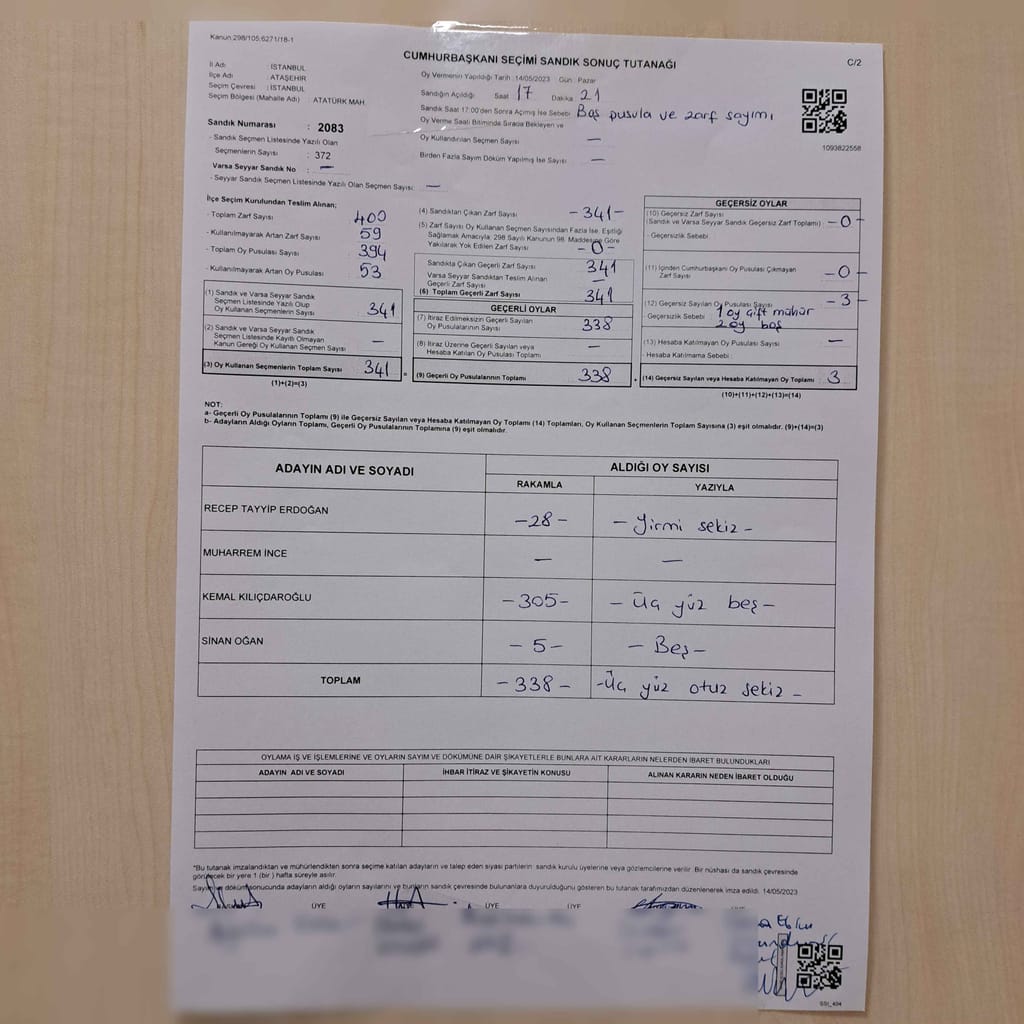 Kanun:298/105;6271/18-1
CUMHURBAŞKANI SEÇİMİ SANDIK SONUÇ TUTANAĞI
C/2
İl Adı : İSTANBUL
İlçe Adı : ATAŞEHİR
Seçim Çevresi : İSTANBUL
Seçim Bölgesi (Mahalle Adı) : ATATÜRK MAH.
Sandık Numarası : 2083
- Sandık Seçmen Listesinde Yazılı Olan
Seçmenlerin Sayısı : 372
Varsa Seyyar Sandık No : —
- Seyyar Sandık Seçmen Listesinde Yazılı Olan Seçmen Sayısı: —
Oy Vermenin Yapıldığı Tarih :14/05/2023 Gün : Pazar
Sandığın Açıldığı Saat 17 Dakika 21
Sandık Saat 17:00'den Sonra Açılmış İse Sebebi: Boş pusula ve zarf sayımı
Oy Verme Saati Bitiminde Sırada Bekleyen ve
Oy Kullandırılan Seçmen Sayısı —
Birden Fazla Sayım Döküm Yapılmış İse Sayısı: —
1093822558
İlçe Seçim Kurulundan Teslim Alınan;
- Toplam Zarf Sayısı 400
- Kullanılmayarak Artan Zarf Sayısı 59
- Toplam Oy Pusulası Sayısı 394
- Kullanılmayarak Artan Oy Pusulası 53
(1) Sandık ve Varsa Seyyar Sandık
Seçmen Listesinde Yazılı Olup
Oy Kullanan Seçmenlerin Sayısı 341
(2) Sandık ve Varsa Seyyar Sandık
Seçmen Listesinde Kayıtlı Olmayan
Kanun Gereği Oy Kullanan Seçmen Sayısı —
(3) Oy Kullanan Seçmenlerin Toplam Sayısı 341 =
(1)+(2)=(3)
(4) Sandıktan Çıkan Zarf Sayısı -341-
(5) Zarf Sayısı Oy Kullanan Seçmen Sayısından Fazla İse, Eşitliği
Sağlamak Amacıyla; 298 Sayılı Kanunun 98. Maddesine Göre
Yakılarak Yok Edilen Zarf Sayısı -0-
Sandıkta Çıkan Geçerli Zarf Sayısı 341
Varsa Seyyar Sandıktan Teslim Alınan
Geçerli Zarf Sayısı —
(6) Toplam Geçerli Zarf Sayısı 341
GEÇERLİ OYLAR
(7) İtiraz Edilmeksizin Geçerli Sayılan
Oy Pusulalarının Sayısı 338
(8) İtiraz Üzerine Geçerli Sayılan veya
Hesaba Katılan Oy Pusulası Toplamı —
(9) Geçerli Oy Pusulalarının Toplamı 338 +
GEÇERSİZ OYLAR
(10) Geçersiz Zarf Sayısı
(Sandık ve Varsa Seyyar Sandık Geçersiz Zarf Toplamı) -0-
- Geçersizlik Sebebi :
(11) İçinden Cumhurbaşkanı Oy Pusulası Çıkmayan
Zarf Sayısı -0-
(12) Geçersiz Sayılan Oy Pusulası Sayısı -3-
- Geçersizlik Sebebi : 1 oy çift mühür
2 oy boş
(13) Hesaba Katılmayan Oy Pusulası Sayısı —
- Hesaba Katılmama Sebebi :
(14) Geçersiz Sayılan veya Hesaba Katılmayan Oy Toplamı 3
(10)+(11)+(12)+(13)=(14)
NOT:
a- Geçerli Oy Pusulalarının Toplamı (9) ile Geçersiz Sayılan veya Hesaba Katılmayan Oy Toplamı (14) Toplamları, Oy Kullanan Seçmenlerin Toplam Sayısına (3) eşit olmalıdır. (9)+(14)=(3)
b- Adayların Aldığı Oyların Toplamı, Geçerli Oy Pusulalarının Toplamına (9) eşit olmalıdır.
ADAYIN ADI VE SOYADI ALDIĞI OY SAYISI
RAKAMLA YAZIYLA
RECEP TAYYİP ERDOĞAN -28- - Yirmi sekiz -
MUHARREM İNCE — —
KEMAL KILIÇDAROĞLU -305- - Üç yüz beş -
SİNAN OĞAN - 5 - - Beş -
TOPLAM - 338 - - Üç yüz otuz sekiz -
OYLAMA İŞ VE İŞLEMLERİNE VE OYLARIN SAYIM VE DÖKÜMÜNE DAİR ŞİKAYETLERLE BUNLARA AİT KARARLARIN NELERDEN İBARET BULUNDUKLARI
ADAYIN ADI VE SOYADI İHBAR İTİRAZ VE ŞİKAYETİN KONUSU ALINAN KARARIN NEDEN İBARET OLDUĞU
*Bu tutanak imzalandıktan ve mühürlendikten sonra seçime katılan adayların ve talep eden siyasi partilerin sandık kurulu üyelerine veya gözlemcilerine verilir. Bir nüshası da sandık çevresinde
görülecek bir yere 1 (bir) hafta süreyle asılır.
döküm sonucunda adayların aldığı oyların sayılarını ve bunların sandık çevresinde bulunanlara duyurulduğunu gösteren bu tutanak tarafımızdan düzenlenerek imza edildi. 14/05/2023
ÜYE ÜYE ÜYE
SSI_404